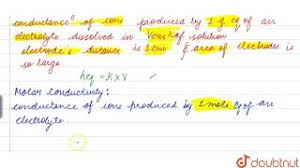 conductance of ions produced by 1 g eq of an
electrolyte dissolved in Vcm³ of solution
electrode's distance is 1cm & area of electrodes is
so large
λeq = K × V
Molar Conductivity:
conductance of ions produced by 1 mole of an
electrolyte.
doubtnut